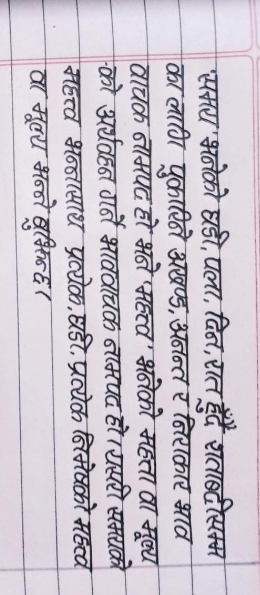 'समय' भनेको घडी, पला, दिन, रात हुँदै शताब्दीसम्म
का लागी पुकारिने अखण्ड, अनन्त र निराकार भाव
वाचक नामपद हो भने 'महत्त्व' भनेको महत्ता वा मूल्य
को अर्थवहन गर्ने भाववाचक नामपद हो। यसरी समयको
महत्त्व भन्नाले प्रत्येक घडी, प्रत्येक निमेषको महत्त्व
वा मूल्य भन्ने बुझिन्छ।